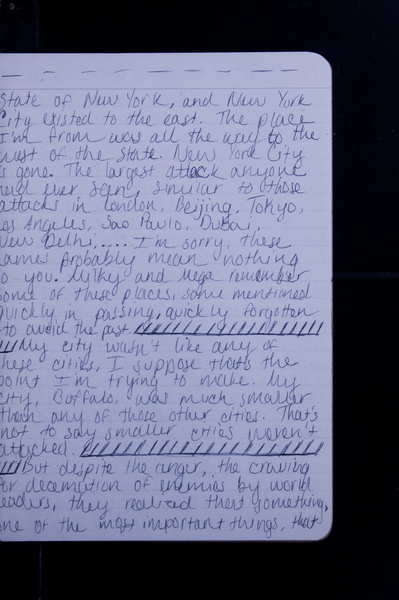 State of New York, and New York
City existed to the east. The place
I'm from was all the way to the
west of the state. New York City
is gone. The largest attack anyone
had ever seen, similar to those
attacks in London, Beijing, Tokyo,
Los Angeles, Sao Paulo, Dubai,
New Delhi,.... I'm sorry, these
names probably mean nothing
to you. Milky and Mega remember
some of these places, some mentioned
quickly in passing, quickly forgotten
to avoid the past.
My city wasn't like any of
these cities, I suppose that's the
point I'm trying to make. My
city, Buffalo, was much smaller
than any of those other cities. That's
not to say smaller cities weren't
attacked.
But despite the anger, the craving
for decemation of enemies by world
leaders, they realized that something,
one of the most important things, that